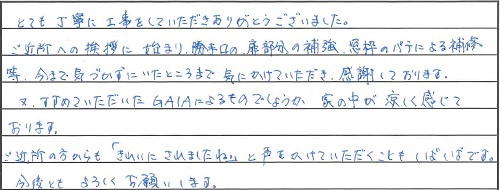 とても丁寧に工事をしていただきありがとうございました。
ご近所への挨拶に始まり、勝手口の扉部分の補強、窓枠のパテによる補修
等、今まで気づかずにいたところまで気にかけていただき、感謝しております。
又、すすめていただいたGAIAによるものでしょうか 家の中が涼しく感じて
おります。
ご近所の方からも「きれいにされましたね。」と声をかけていただくこともしばしばです。
今後とも よろしくお願いします。